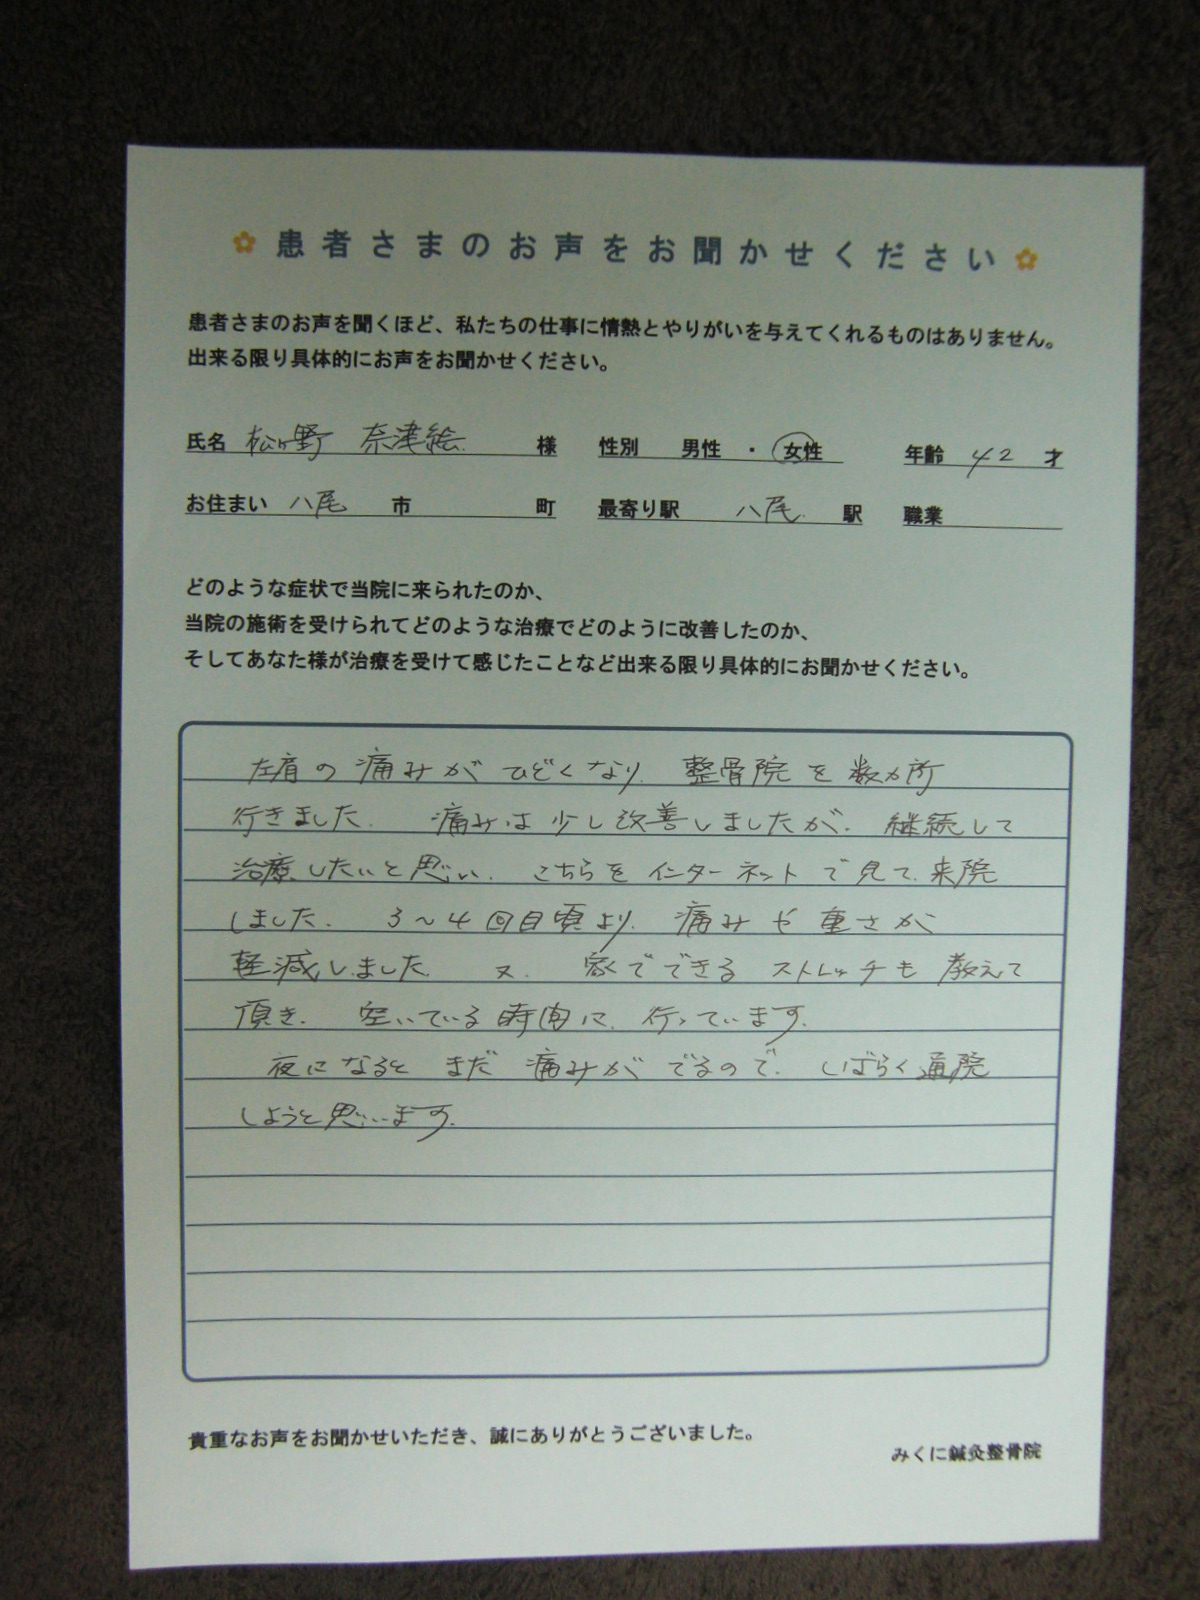 患者さまのお声をお聞かせください
患者さまのお声を聞くほど、私たちの仕事に情熱とやりがいを与えてくれるものはありません。
出来る限り具体的にお声をお聞かせください。
氏名 松ヶ野 奈津絵 様 性別 男性 ・ 女性 年齢 42 才
お住まい 八尾 市 町 最寄り駅 八尾 駅 職業
どのような症状で当院に来られたのか、
当院の施術を受けられてどのような治療でどのように改善したのか、
そしてあなた様が治療を受けて感じたことなど出来る限り具体的にお聞かせください。
左肩の痛みがひどくなり、整骨院を数ヵ所
行きました。痛みは少し改善しましたが、継続して
治療したいと思い、こちらをインターネットで見て、来院
しました。3〜4回目頃より、痛みや重さが
軽減しました。又、家でできるストレッチも教えて
頂き、空いている時間に、行っています。
夜になるとまだ痛みがでるので、しばらく通院
しようと思います。
貴重なお声をお聞かせいただき、誠にありがとうございました。
みくに鍼灸整骨院